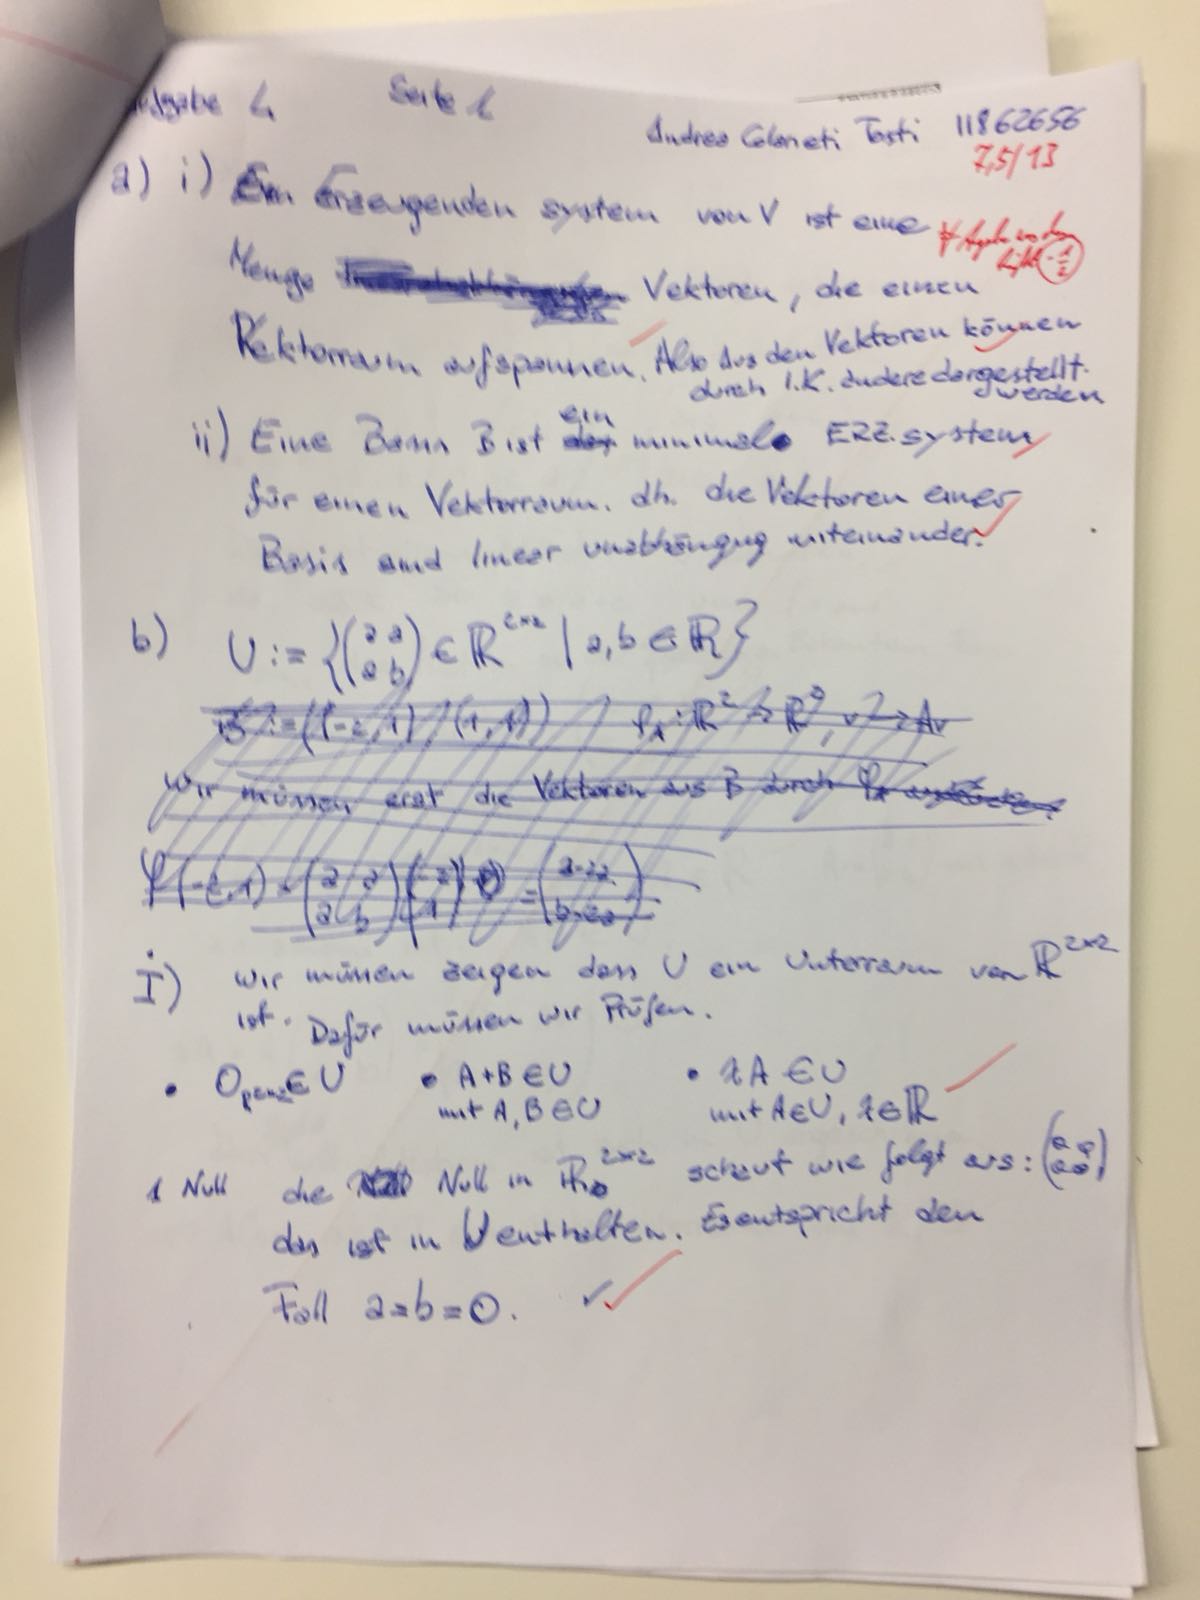 Aufgabe 4 Seite 1
Andrea Colaneti Tosti 11862656
7,5/13
a) i) Ein Erzeugenden system von V ist eine
Menge Vektoren, die einen
Vektorraum aufspannen. Also Aus den Vektoren können
durch l.K. andere dargestellt
werden
ii) Eine Basis B ist ein minimales ERZ.system
für einen Vektorraum. dh. die Vektoren einer
Basis sind linear unabhängug miteinander.
b) U := {(a a / a b) ∈ ℝ^2×2 | a, b ∈ ℝ}
B := ((-2, 1), (1, 1)) φ_A : ℝ^2 → ℝ^2, v → Av
wir müssen erst die Vektoren aus B durch φ_A
φ(-2, 1) = (a a / a b)(-2 / 1) = (a-2a / b-2a)
i) wir müssen zeigen dass U ein Unterraum von ℝ^2×2
ist. Dafür müssen wir Prüfen.
• 0 ∈ U • A+B ∈ U • λA ∈ U
mit A, B ∈ U mit A ∈ U, λ ∈ ℝ
1 Null die Null in ℝ^2×2 schaut wie folgt aus: (0 0 / 0 0)
das ist in U enthalten. Es entspricht den
Fall a=b=0. ✓